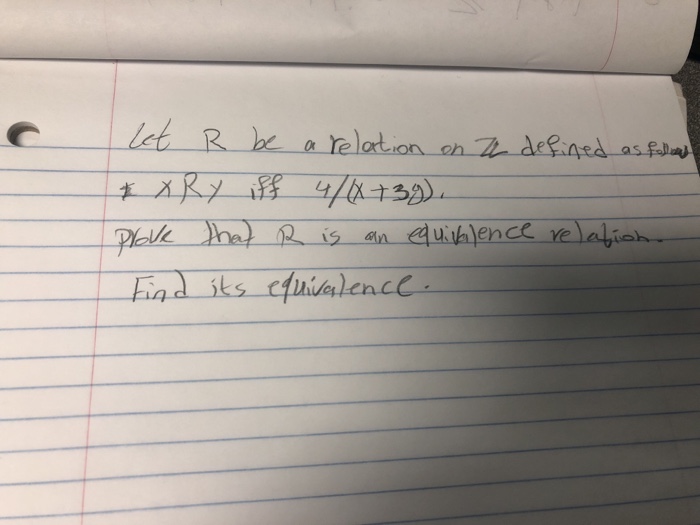 Let R be a relation on ℤ defined as follows
* x R y iff 4/(x+3y).
Prove that R is an equivalence relation.
Find its equivalence.